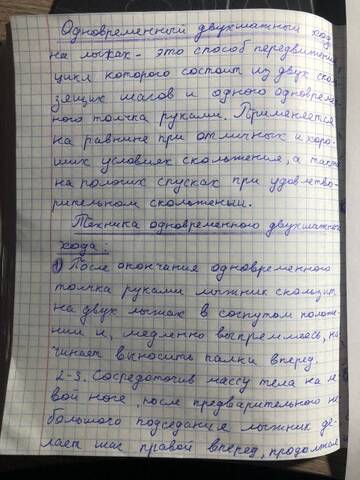 Одновременный двухшажный ход
на лыжах - это способ передвижения,
цикл которого состоит из двух сколь
зящих шагов и одного одновремен
ного толчка руками. Применяется
на равнине при отличных и хоро-
ших условиях скольжения, а также
на пологих спусках при удовлетво-
рительном скольжении.
Техника одновременного двухшажного
хода:
1) После окончания одновременного
толчка руками лыжник скользит
на двух лыжах в согнутом положе-
нии и, медленно выпрямляясь, на-
чинает выносить палки вперед.
2-3. Сосредоточив массу тела на ле
вой ноге, после предварительного не
большого подседания лыжник де-
лает шаг правой вперед, продолжая